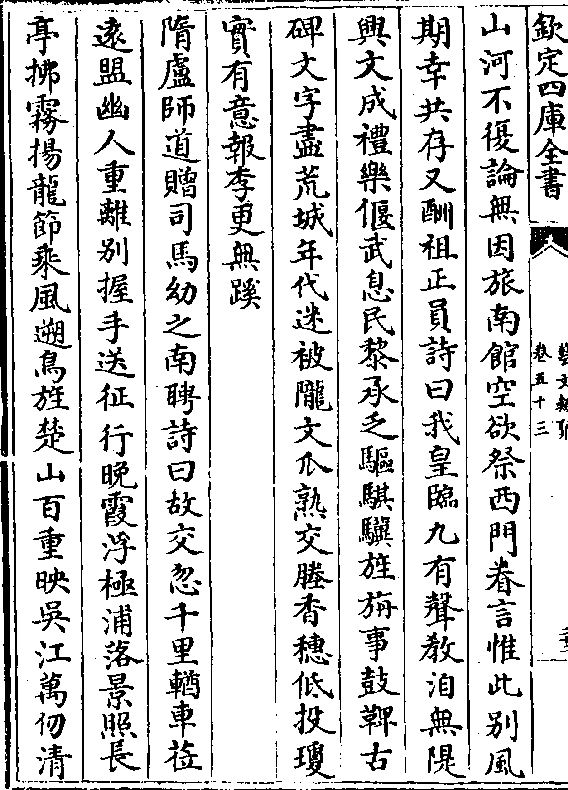 欽定四庫全書
藝文類聚
卷五十三
山河不復論無因旅南館空欲祭西門眷言惟此别風
期幸共存又酬祖正員詩曰我皇臨九有聲教洎無隄
興文成禮樂偃武息民黎承乏驅騏驥旌旃事鼓鞞古
碑文字盡荒城年代迷被隴文瓜熟交塍香穗低投瓊
實有意報李更無蹊
隋盧師道贈司馬幼之南聘詩曰故交忽千里輶車莅
遠盟幽人重離别握手送征行晚霞浮極浦落景照長
亭拂霧揚龍節乗風遡鳥旌楚山百重映吳江萬仞清